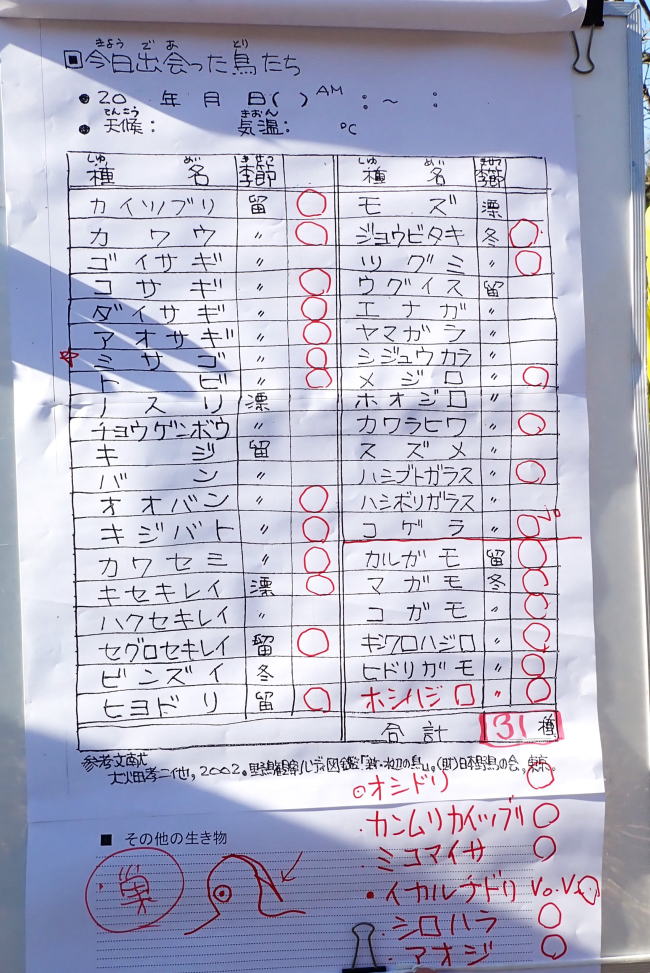 きょう で あ とり
今日出会った鳥たち
● 20 年 月 日( ) AM : ~ :
てんこう きおん
● 天候: 気温: ℃
しゅ めい きせつ
種 名 季節
カイツブリ 留 ○
カワウ 〃 ○
ゴイサギ 〃
コサギ 〃 ○
ダイサギ 〃 ○
アオサギ 〃 ○
☆ ミサゴ 〃 ○
トビ 〃 ○
ノスリ 漂
チョウゲンボウ 〃
キジ 留
バン 〃
オオバン 〃 ○
キジバト 〃 ○
カワセミ 〃 ○
キセキレイ 漂 ○
ハクセキレイ 〃
セグロセキレイ 留 ○
ビンズイ 冬
ヒヨドリ 留 ○
しゅ めい きせつ
種 名 季節
モズ 漂
ジョウビタキ 冬 ○
ツグミ 〃 ○
ウグイス 留
エナガ 〃
ヤマガラ 〃
シジュウカラ 〃
メジロ 〃 ○
ホオジロ 〃
カワラヒワ 〃 ○
スズメ 〃
ハシブトガラス 〃 ○
ハシボソガラス 〃
コゲラ 〃 ○
カルガモ 留 ○
マガモ 冬 ○
コガモ 〃 ○
キンクロハジロ 〃 ○
ヒドリガモ 〃 ○
ホシハジロ 〃 ○
合計 31 種
参考文献
2002。
オシドリ ○
カンムリカイツブリ ○
ミコアイサ ○
● イカルチドリ V。V。○
シロハラ ○
アオジ ○
■ その他の生き物
巣